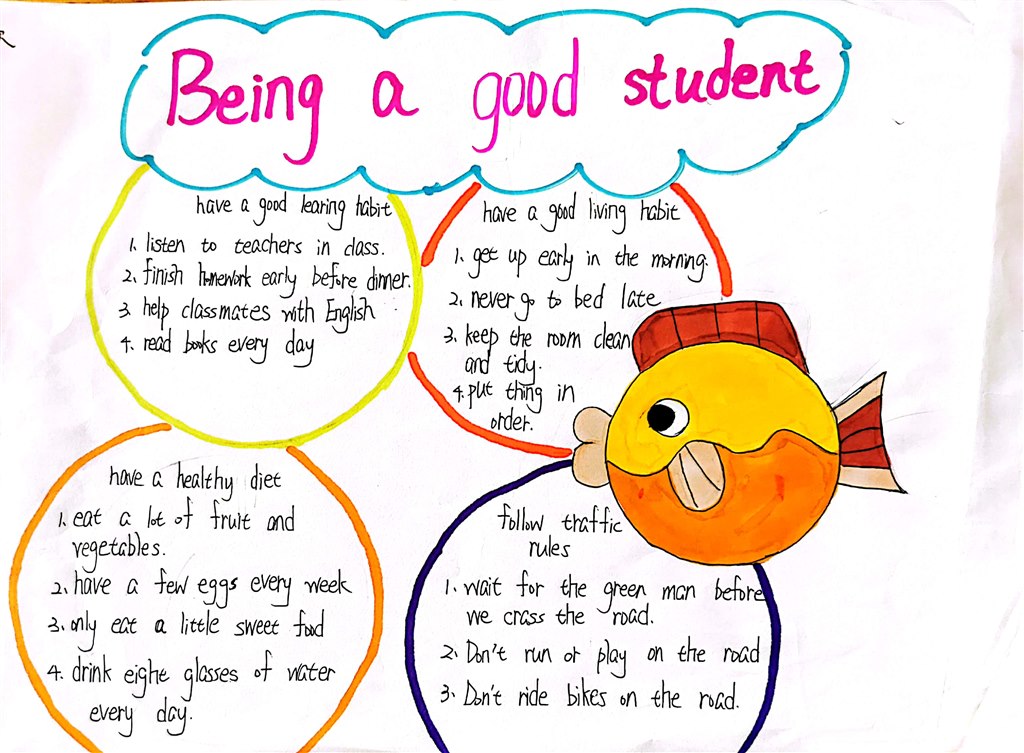 Being a good student
have a good learing habit
1. listen to teachers in class.
2. finish homework early before dinner.
3. help classmates with English
4. read books every day
have a good living habit
1. get up early in the morning.
2. never go to bed late
3. keep the room clean
and tidy.
4. put thing in
order.
have a healthy diet
1. eat a lot of fruit and
vegetables.
2. have a few eggs every week
3. only eat a little sweet food
4. drink eight glasses of water
every day.
follow traffic
rules
1. wait for the green man before
we crass the road.
2. Don't run or play on the road
3. Don't ride bikes on the road.